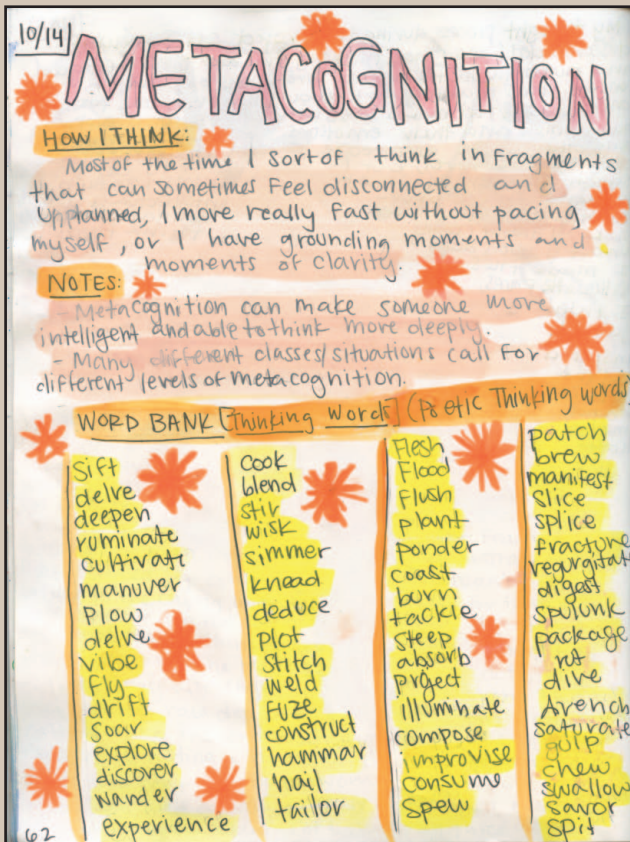 10/14
METACOGNITION
HOW I THINK:
Most of the time I sort of think in fragments
that can sometimes feel disconnected and
unplanned, I move really fast without pacing
myself, or I have grounding moments and
moments of clarity.
NOTES:
- Metacognition can make someone more
intelligent and able to think more deeply.
- Many different classes/situations call for
different levels of metacognition.
WORD BANK [Thinking Words] (Poetic Thinking words)
Sift
delve
deepen
ruminate
cultivate
manuver
Plow
delve
vibe
fly
drift
soar
explore
discover
wander
experience
cook
blend
stir
wisk
simmer
knead
deduce
plot
stitch
weld
fuze
construct
hammar
nail
tailor
Flesh
Flood
flush
plant
ponder
coast
burn
tackle
steep
absorb
project
illuminate
compose
improvise
consume
spew
patch
brew
manifest
slice
splice
fracture
regurgitate
digest
spulunk
package
dive
saturate
gulp
chew
swallow
savor
spit
62